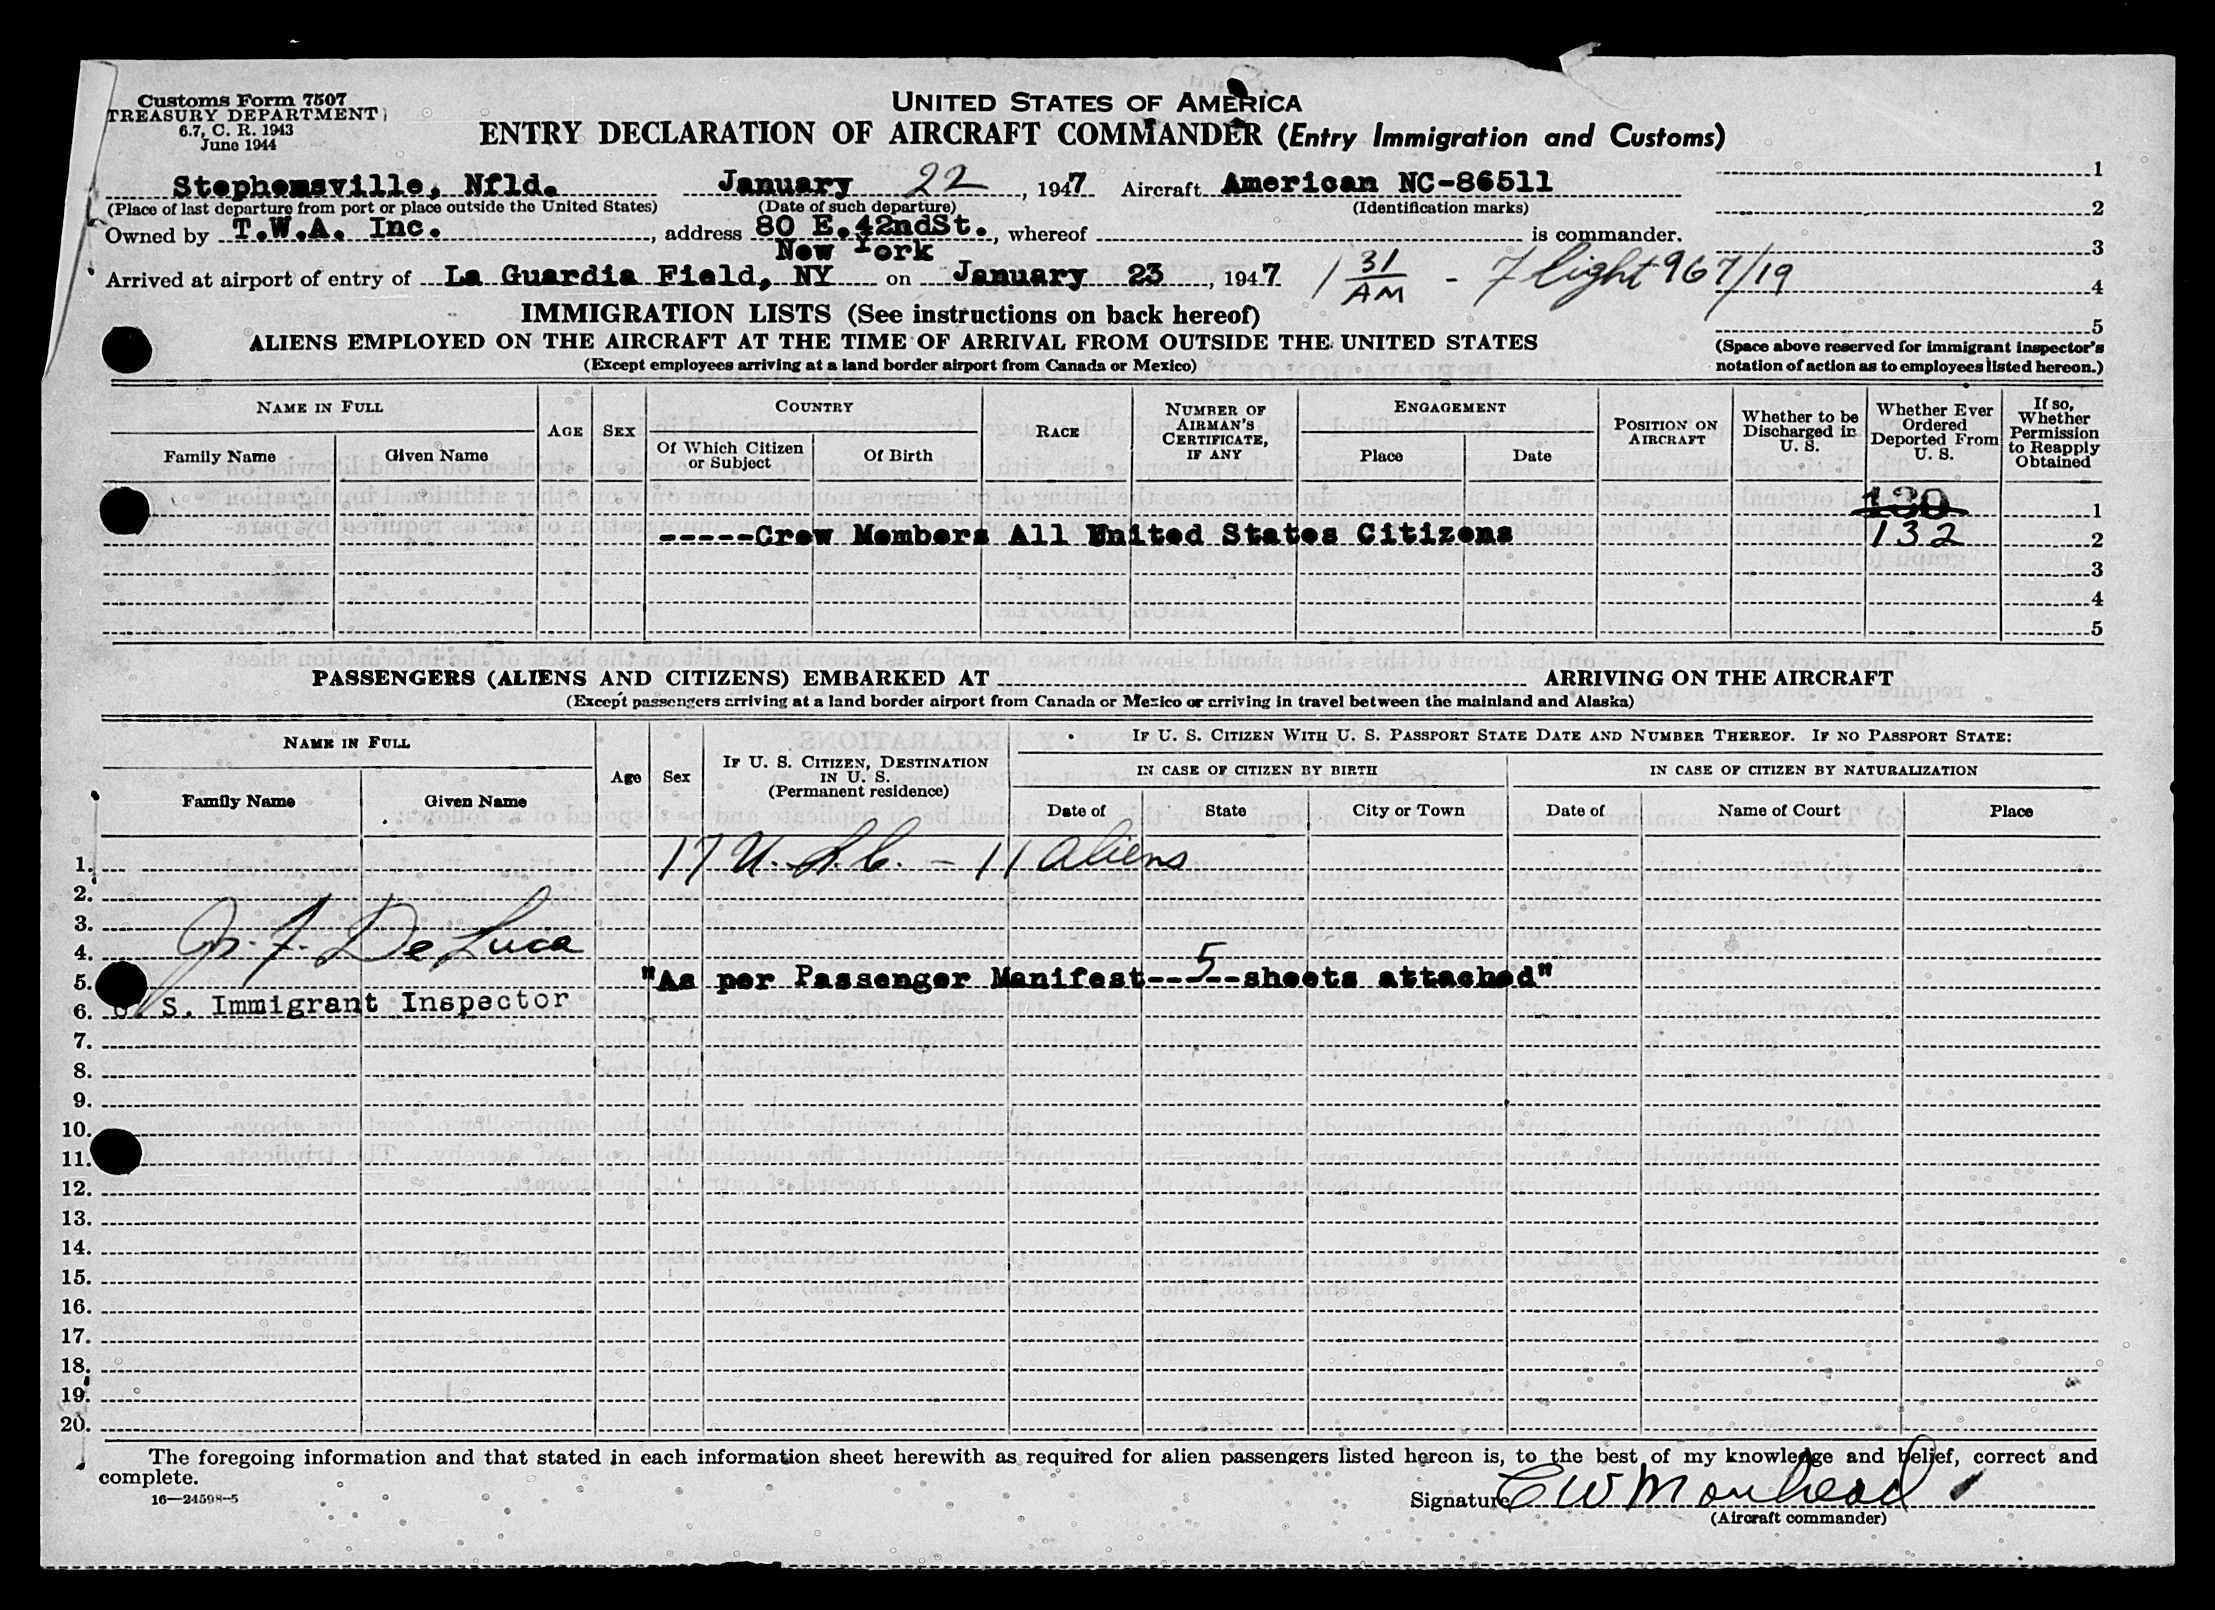 Customs Form 7507
TREASURY DEPARTMENT
6.7, C. R. 1943
June 1944
UNITED STATES OF AMERICA
ENTRY DECLARATION OF AIRCRAFT COMMANDER (Entry Immigration and Customs)
Stephensville, Nfld. January 22, 1947 Aircraft American NC-86511
(Place of last departure from port or place outside the United States) (Date of such departure) (Identification marks)
Owned by T.W.A. Inc., address 80 E.42ndSt., whereof is commander.
New York
Arrived at airport of entry of La Guardia Field, NY on January 23, 1947 1 31/AM - Flight 967/19
1
2
3
4
5
(Space above reserved for immigrant inspector's
notation of action as to employees listed hereon.)
IMMIGRATION LISTS (See instructions on back hereof)
ALIENS EMPLOYED ON THE AIRCRAFT AT THE TIME OF ARRIVAL FROM OUTSIDE THE UNITED STATES
(Except employees arriving at a land border airport from Canada or Mexico)
NAME IN FULL
Family Name Given Name
AGE
SEX
COUNTRY
Of Which Citizen or Subject
Of Birth
RACE
NUMBER OF AIRMAN'S CERTIFICATE, IF ANY
ENGAGEMENT
Place Date
POSITION ON AIRCRAFT
Whether to be Discharged in U. S.
Whether Ever Ordered Deported From U. S.
If so, Whether Permission to Reapply Obtained
130 1
-----Crew Members All United States Citizens 132 2
3
4
5
PASSENGERS (ALIENS AND CITIZENS) EMBARKED AT ARRIVING ON THE AIRCRAFT
(Except passengers arriving at a land border airport from Canada or Mexico or arriving in travel between the mainland and Alaska)
NAME IN FULL
Family Name Given Name
Age
Sex
IF U. S. CITIZEN, DESTINATION IN U. S.
(Permanent residence)
IF U. S. CITIZEN WITH U. S. PASSPORT STATE DATE AND NUMBER THEREOF. IF NO PASSPORT STATE:
IN CASE OF CITIZEN BY BIRTH IN CASE OF CITIZEN BY NATURALIZATION
Date of State City or Town Date of Name of Court Place
1. 17 U.S.C. - 11 aliens
2.
3. J. F. De Luca
4.
5. "As per Passenger Manifest--5--sheets attached"
6. U. S. Immigrant Inspector
7.
8.
9.
10.
11.
12.
13.
14.
15.
16.
17.
18.
19.
20.
The foregoing information and that stated in each information sheet herewith as required for alien passengers listed hereon is, to the best of my knowledge and belief, correct and
complete.
16—24598-5
Signature C W Morehead
(Aircraft commander)